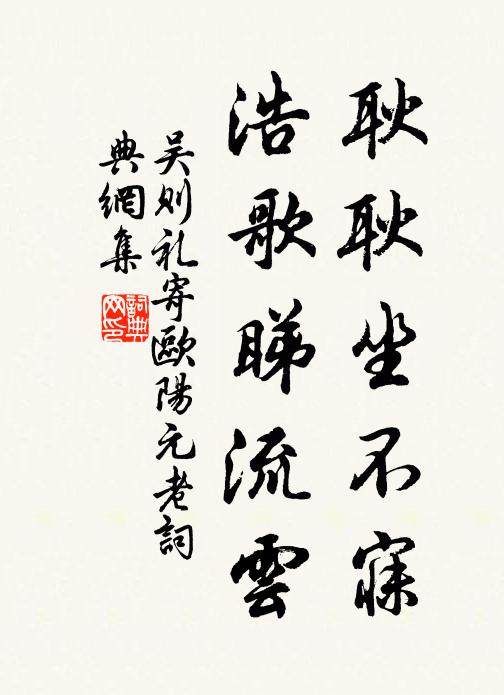 耿耿坐不寐
浩歌睇流雲
吴则礼寄歐陽元老詞
典網集
詞典
网印